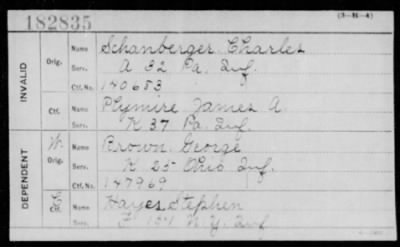 182835
(3-H-4)
INVALID
Orig.
Name Schanberger Charles
Serv. A 82 Pa. Inf.
Ctf. No. 140683
Ctf.
Name Plymire James A.
Serv. K 37 Pa. Inf.
DEPENDENT
W. Orig.
Name Brown George
Serv. K 25 Ohio Inf.
Ctf. No. 147969
Ctf.
Name Hayes Stephen
Serv. F 151 N.Y. Inf